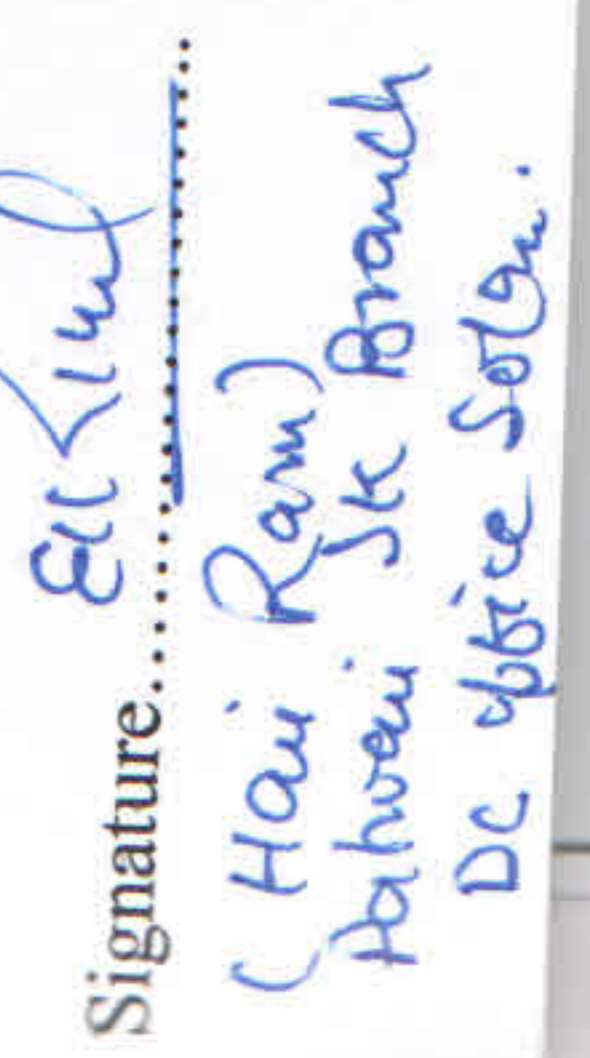 Signature..................
( Hari Ram)
Patwari SK Branch
DC office Solan.